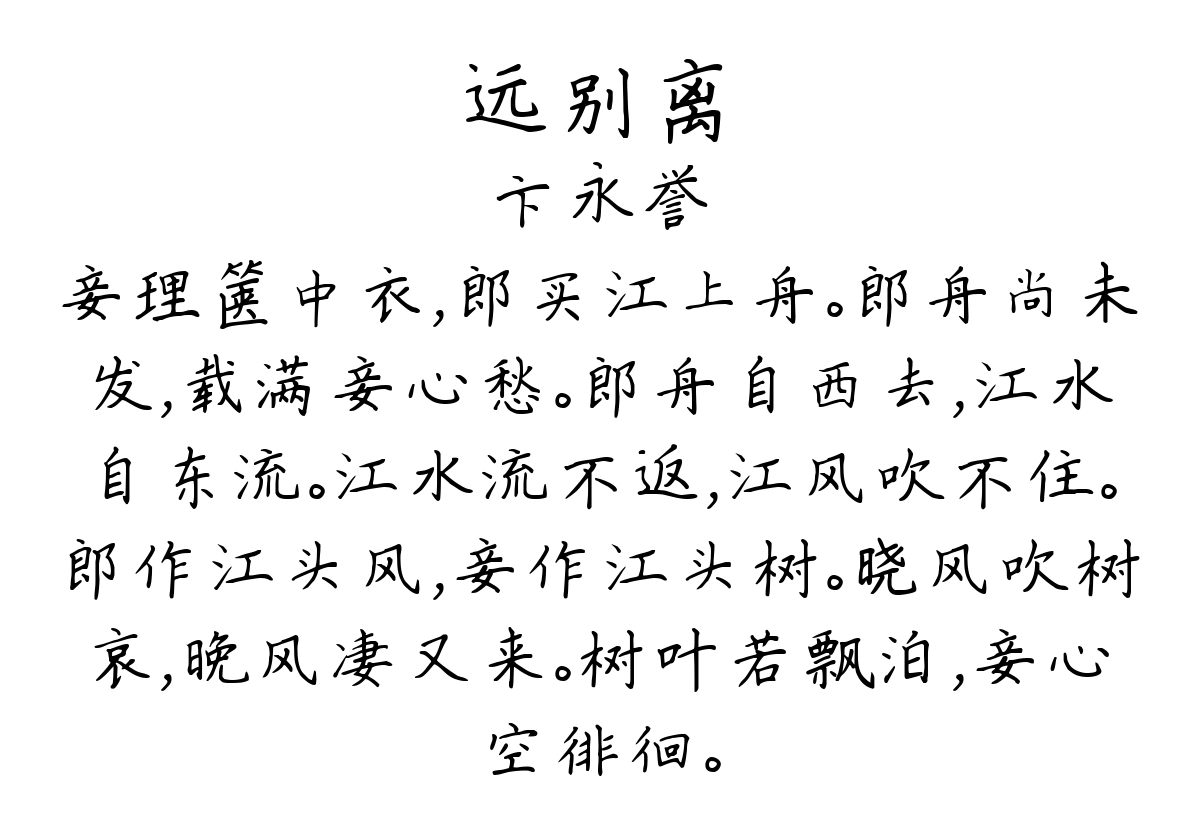 远别离
卞永誉
妾理箧中衣,郎买江上舟。郎舟尚未
发,载满妾心愁。郎舟自西去,江水
自东流。江水流不返,江风吹不住。
郎作江头风,妾作江头树。晓风吹树
哀,晚风凄又来。树叶若飘泊,妾心
空徘徊。